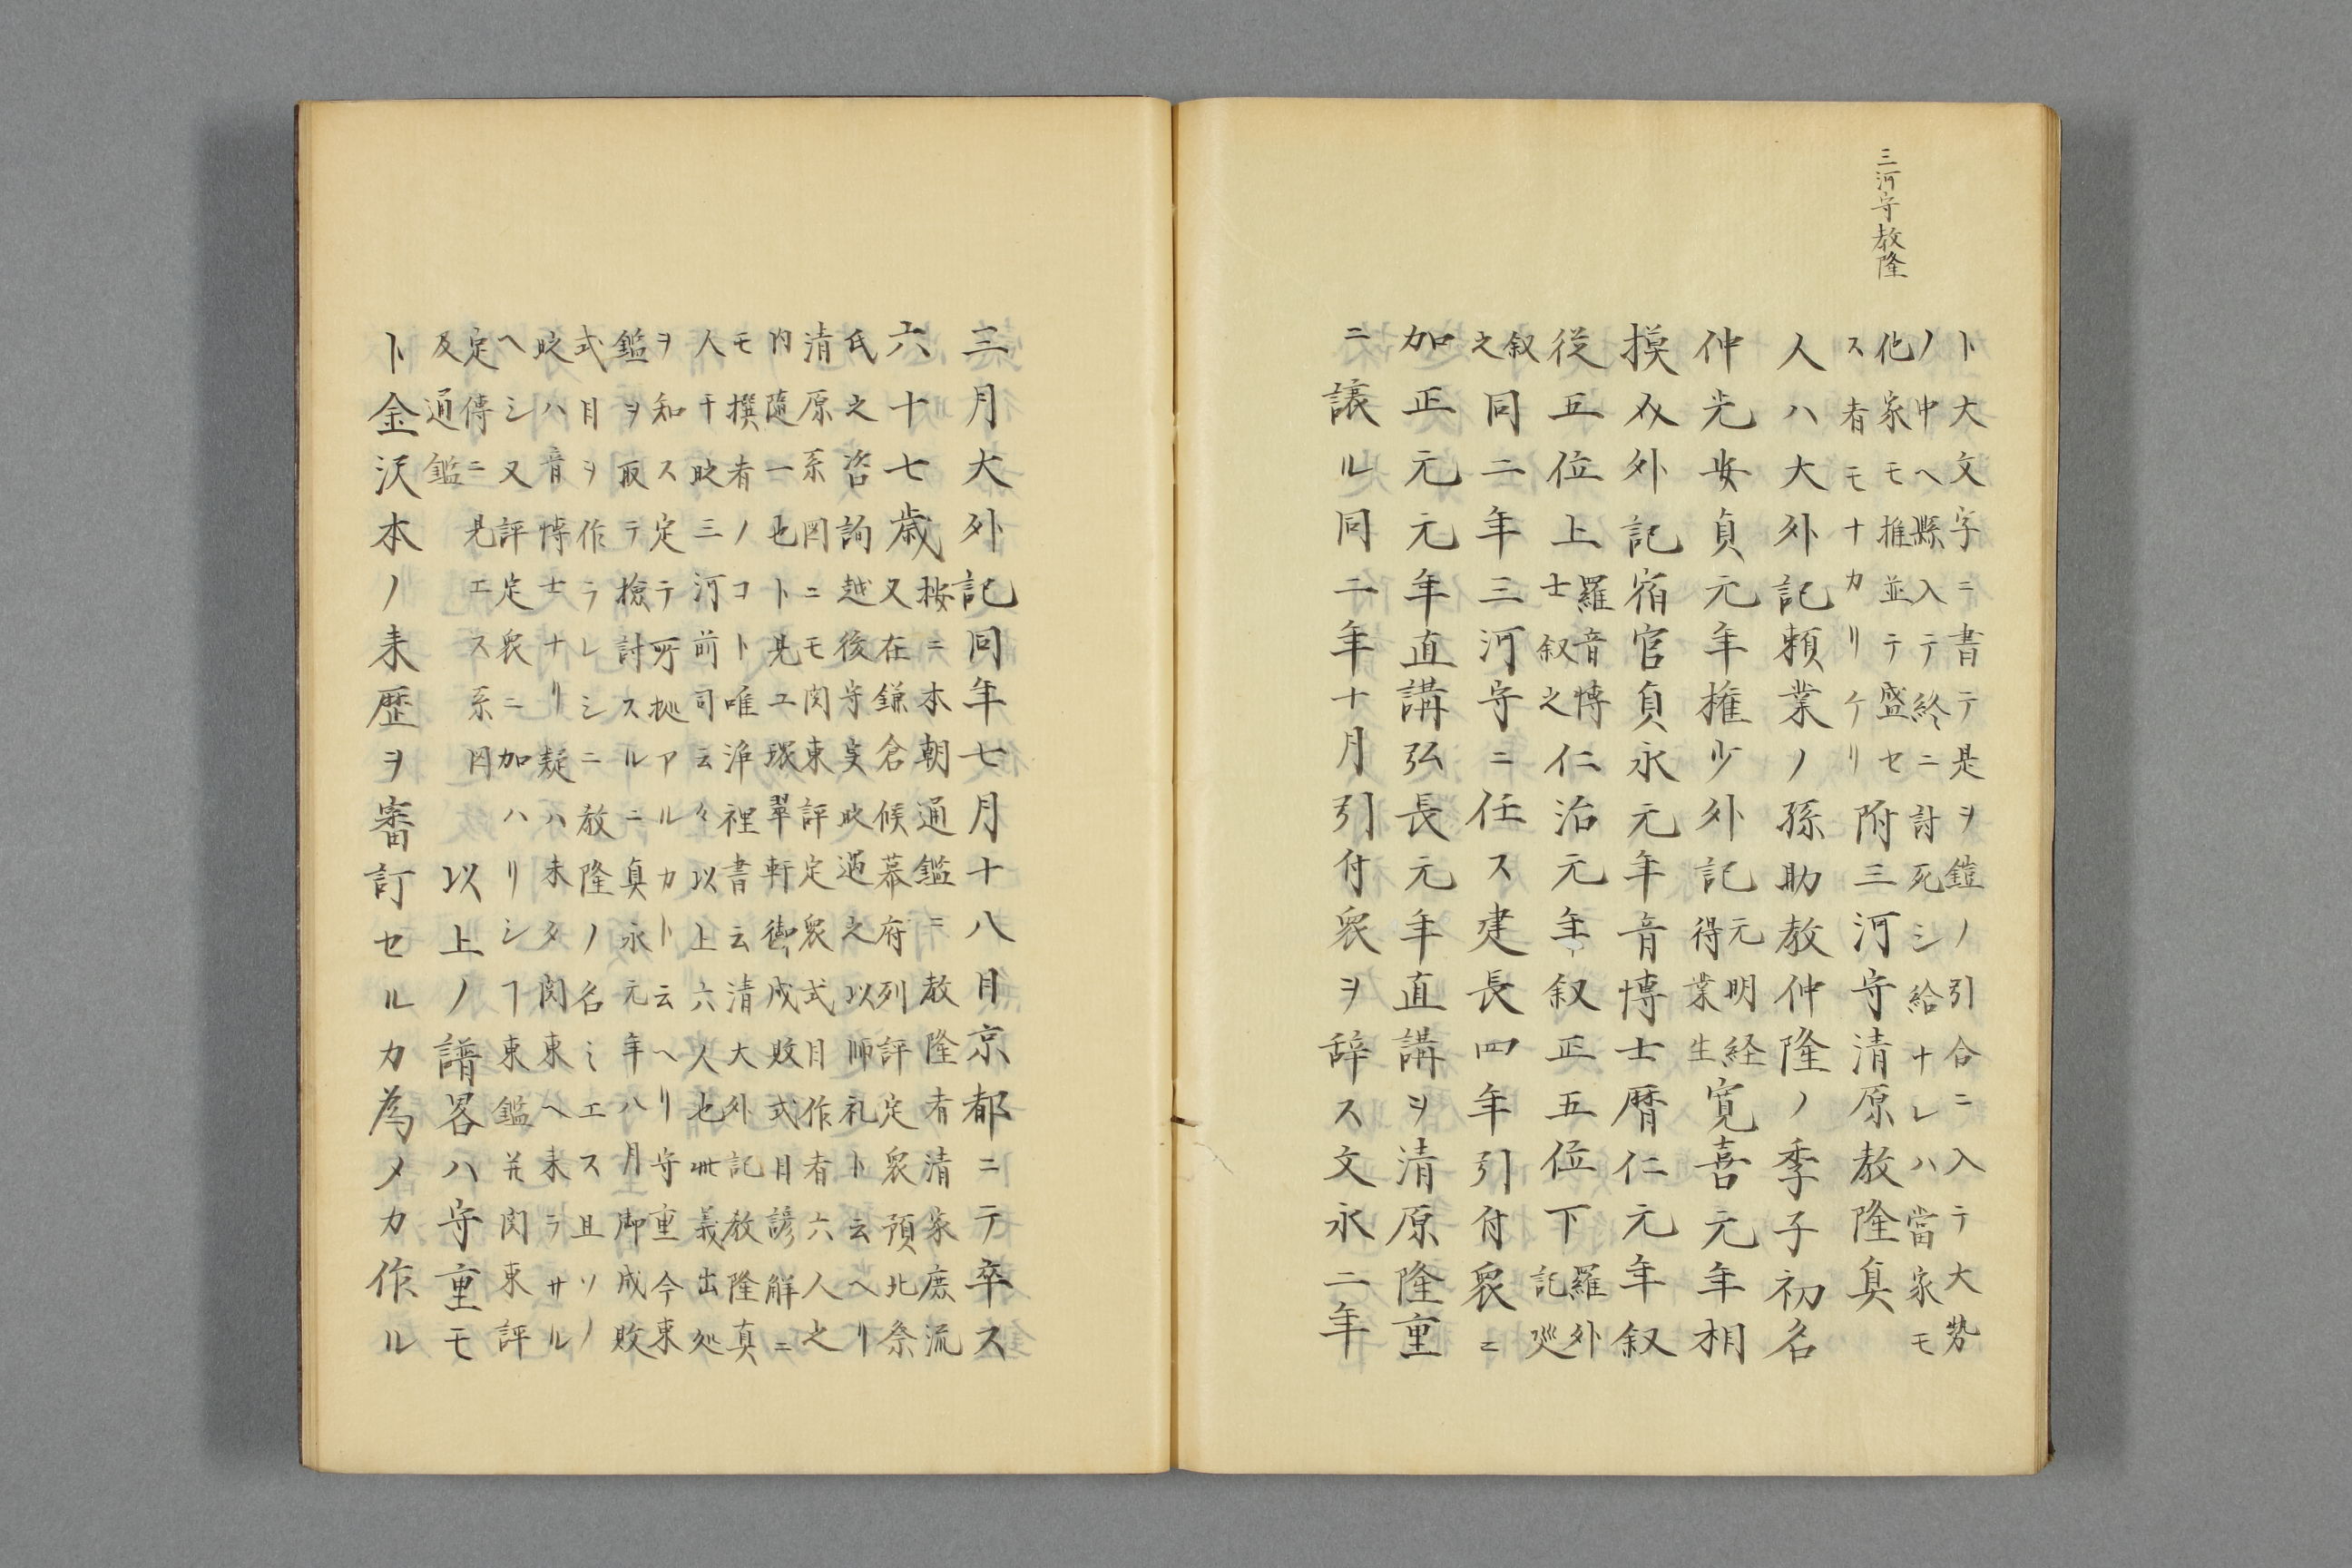 三河守教隆
ト大文字ニ書テ是ヲ鎧ノ引合ニ入テ大勢
ノ中ヘ懸入テ終ニ討死シ給ナレハ當家モ
化家モ推並テ盛セ
ス者モナカリケリ
附三河守清原教隆真
人ハ大外記頼業ノ孫助教仲隆ノ季子初名
仲光安貞元年権少外記
元明経
得業生
寛喜元年相
摸㕝外記宿官貞永元年音博士暦仁元年叙
従五位上
羅音博
士叙之
仁治元年叙正五位下
羅外
記廵
叙
之
同二年三河守ニ任ス建長四年引付衆ニ
加正元元年直講弘長元年直講ヲ清原隆重
ニ譲ル同二年十月引付衆ヲ辞ス文永二年
三月大外記同年七月十八日京都ニテ卒ス
六十七歳
按ニ本朝通鑑ニ教隆者清家庶流
又在鎌倉候幕府列評定衆預北条
氏之咨詢越後守実時遇之以師礼ト云ヘリ
清原系図ニモ関東評定衆式目作者六人之
内随一也ト見ユ環翠軒御成敗式目諺解ニ
モ撰者ノコト唯浄裡書云清大外記教隆真
人干時三河前司云々以上六人也此義出処
ヲ知ス定テ所拠アルカト云ヘリ守重今東
鑑ヲ取テ検討スルニ貞永元年八月御成敗
式目ヲ作ラレシニ教隆ノ名ミエス且ソノ
時ハ音博士ナリ疑ハ未タ関東ヘ来ラサル
ヘシ又評定衆ニ加ハリシヿ東鑑并関東評
定傳ニ見エス系図
及通鑑
以上ノ譜畧ハ守重モ
ト金沢本ノ来歴ヲ審訂セルカ為メカ作ル